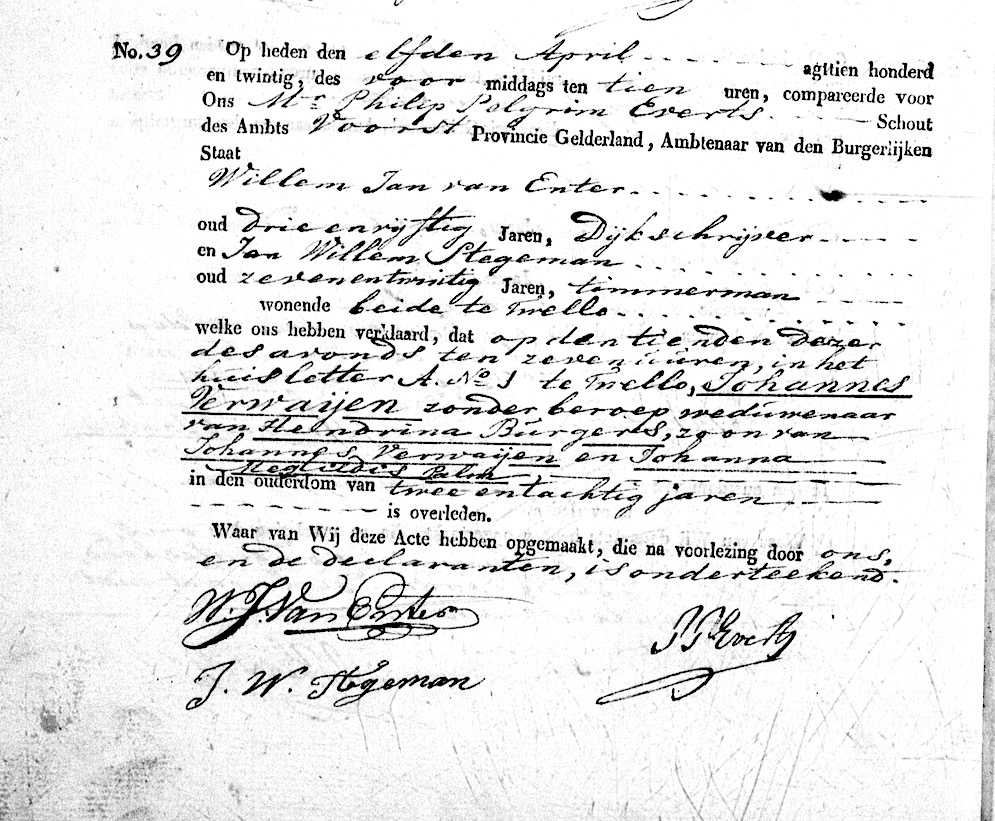 No. 39 Op heden den elfden April agttien honderd
en twintig, des voor middags ten tien uren, compareerde voor
Ons Mr Philip Pelgrim Everts Schout
des Ambts Voorst Provincie Gelderland, Ambtenaar van den Burgerlijken
Staat
Willem Jan van Enter
oud drie en vijftig Jaren, Dijkschrijver
en Jan Willem Stegeman
oud zevenentwintig Jaren, timmerman
wonende beide te Twello
welke ons hebben verklaard, dat op den tienden dezer
des avonds ten zeven uuren, in het
huis letter A. No 1 te Twello, Johannes
Verwaijen zonder beroep weduwenaar
van Hendrina Burgers, zoon van
Johannes Verwaijen en Johanna
Palm
in den ouderdom van twee en tachtig jaren
is overleden.
Waar van Wij deze Acte hebben opgemaakt, die na voorlezing door ons,
en de declaranten, is onderteekend.
W. J. Van Enter
PPEverts
J. W. Stegeman